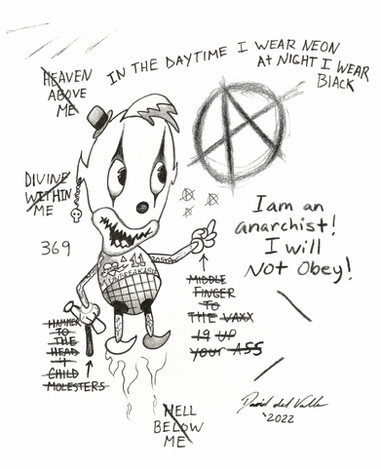 IN THE DAYTIME I WEAR NEON
AT NIGHT I WEAR
BLACK
HEAVEN
ABOVE
ME
DIVINE
WITHIN
ME
369
I am an
anarchist!
I will
Not Obey!
MIDDLE
FINGER
TO
THE VAXX
19 UP
YOUR ASS
HAMMER
TO THE
HEAD
4
CHILD
MOLESTERS
HELL
BELOW
ME
David del Valle
'2022